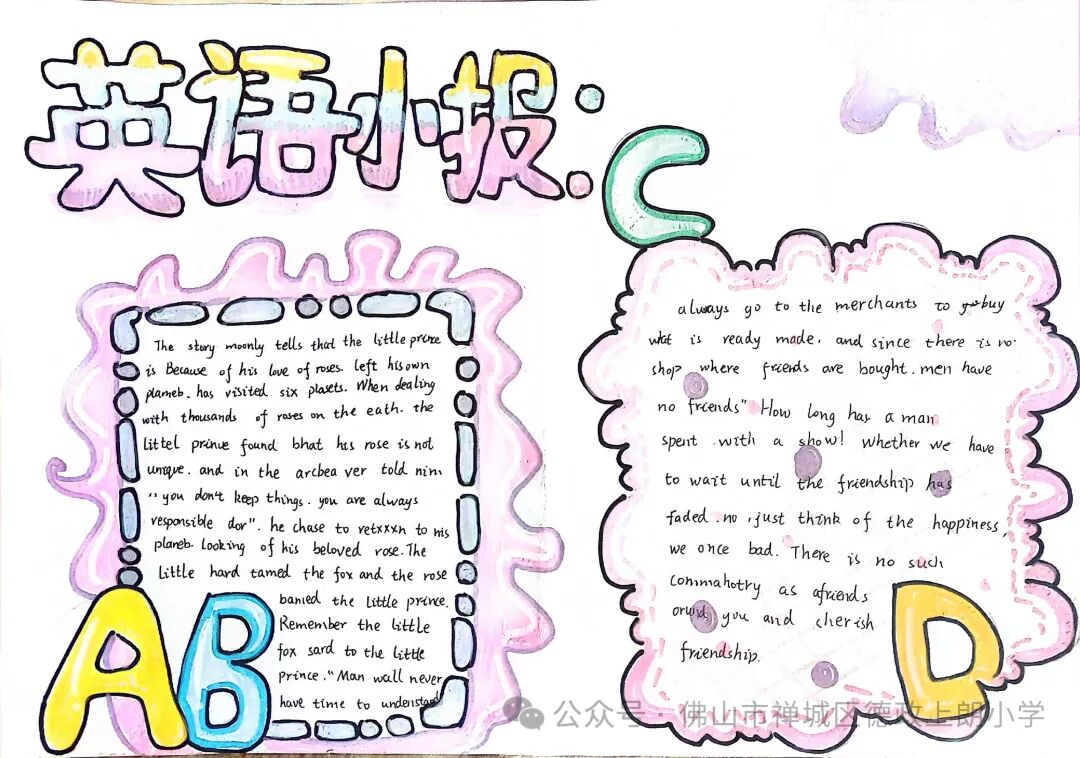 英语小报:
C
The story moonly tells that the little prince
is Because of his love of roses. left his own
planeb. has visited six plasets. When dealing
with thousands of roses on the eath. the
littel prince found bhat his rose is not
unique. and in the arcbea ver told nim
"you don't keep things. you are always
responsible dor". he chase to retxxxn to his
planeb. Looking of his beloved rose. The
little hard tamed the fox and the rose
banied the little prince.
Remember the little
fox sard to the little
prince. "Man wall never
have time to understand
A B
always go to the merchants to buy
what is ready made. and since there is no
shop where friends are bought. men have
no friends" How long has a man
spent with a show! Whether we have
to wait until the friendship has
faded. no, just think of the happiness,
we once bad. There is no such
commahotry as afriends
around you and cherish
friendship.
D
公众号 · 佛山市禅城区德政上朗小学